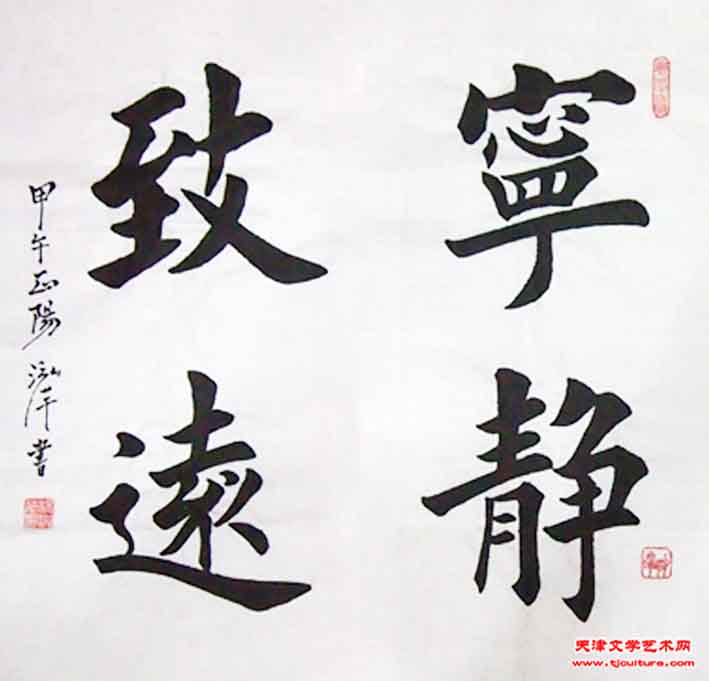 寧静
致遠
甲午正陽 泓洋書
天津文学艺术网
www.tjculture.com